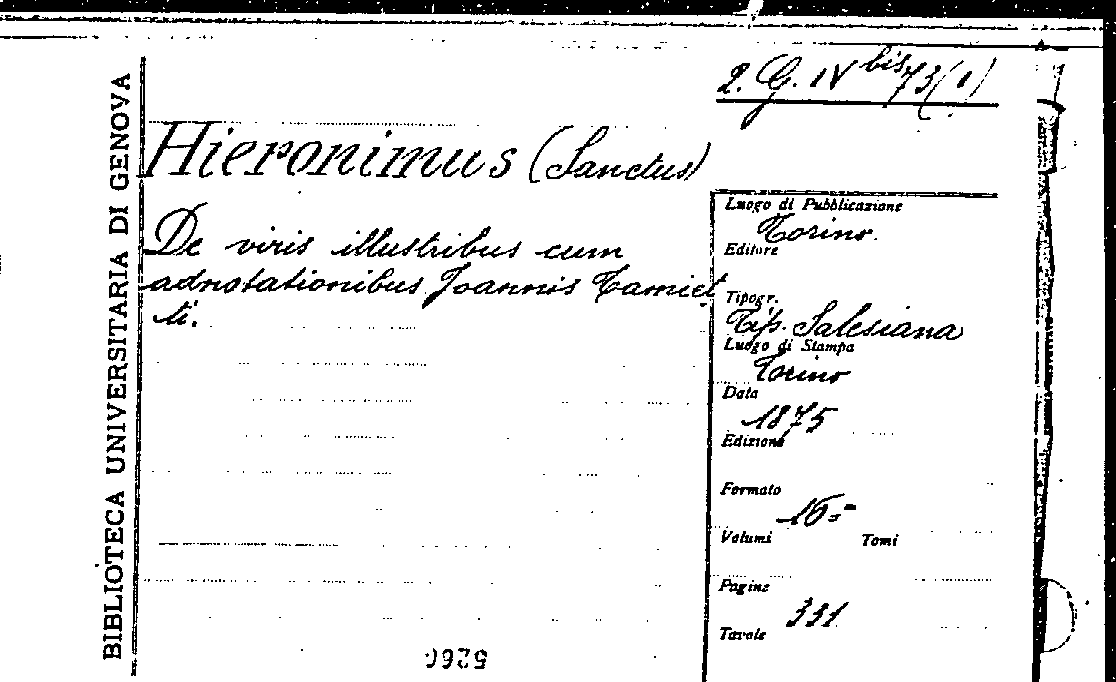 2. G. IV bis 73(1)
BIBLIOTECA UNIVERSITARIA DI GENOVA
Hieronimus (Sanctus)
De viris illustribus cum
adnotationibus Joannis Tamiet
ti.
Luogo di Pubblicazione
Torino.
Editore
Tipogr.
Tip. Salesiana
Luogo di Stampa
Torino
Data
1875
Edizione
Formato
16=
Volumi Tomi
Pagine
331
Tavole